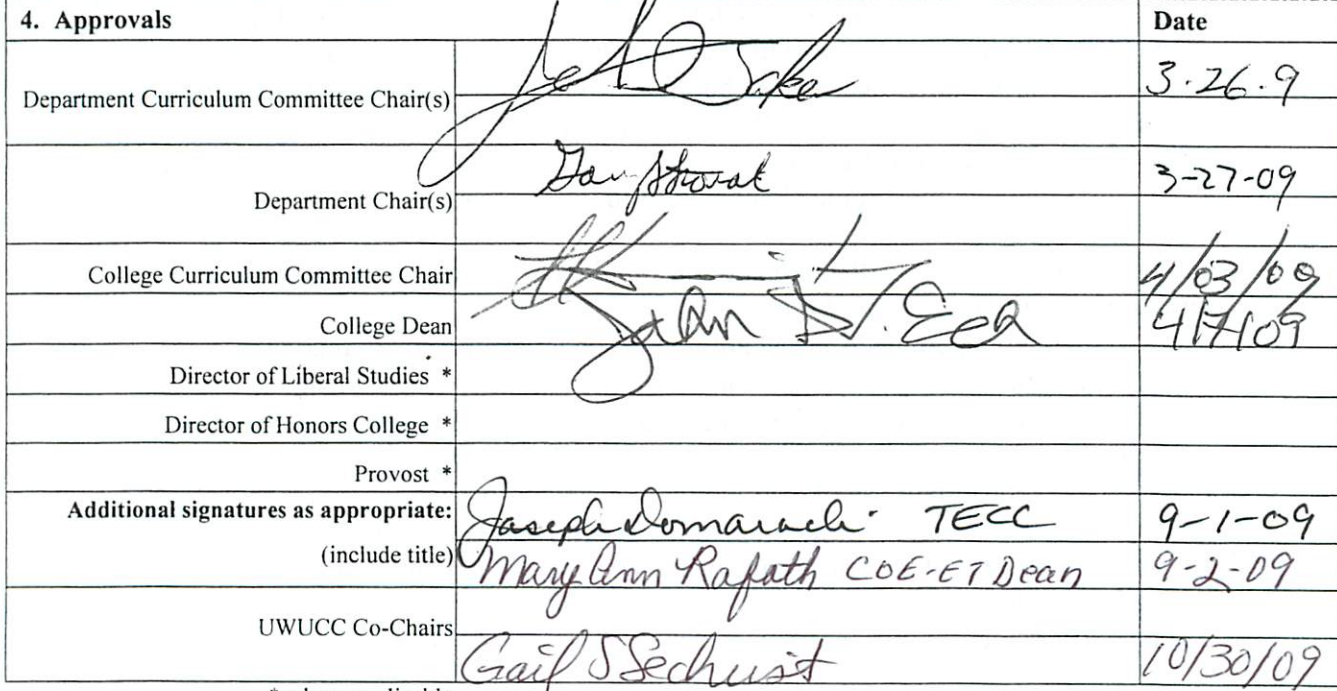 4. Approvals Date
Department Curriculum Committee Chair(s) 3-26-9
Department Chair(s) 3-27-09
College Curriculum Committee Chair 4/03/09
College Dean John D. Eck 4/7/09
Director of Liberal Studies *
Director of Honors College *
Provost *
Additional signatures as appropriate: Joseph Domaracki TECC 9-1-09
(include title) Mary Ann Rafoth COE-ET Dean 9-2-09
UWUCC Co-Chairs
Gail S Sechrist 10/30/09